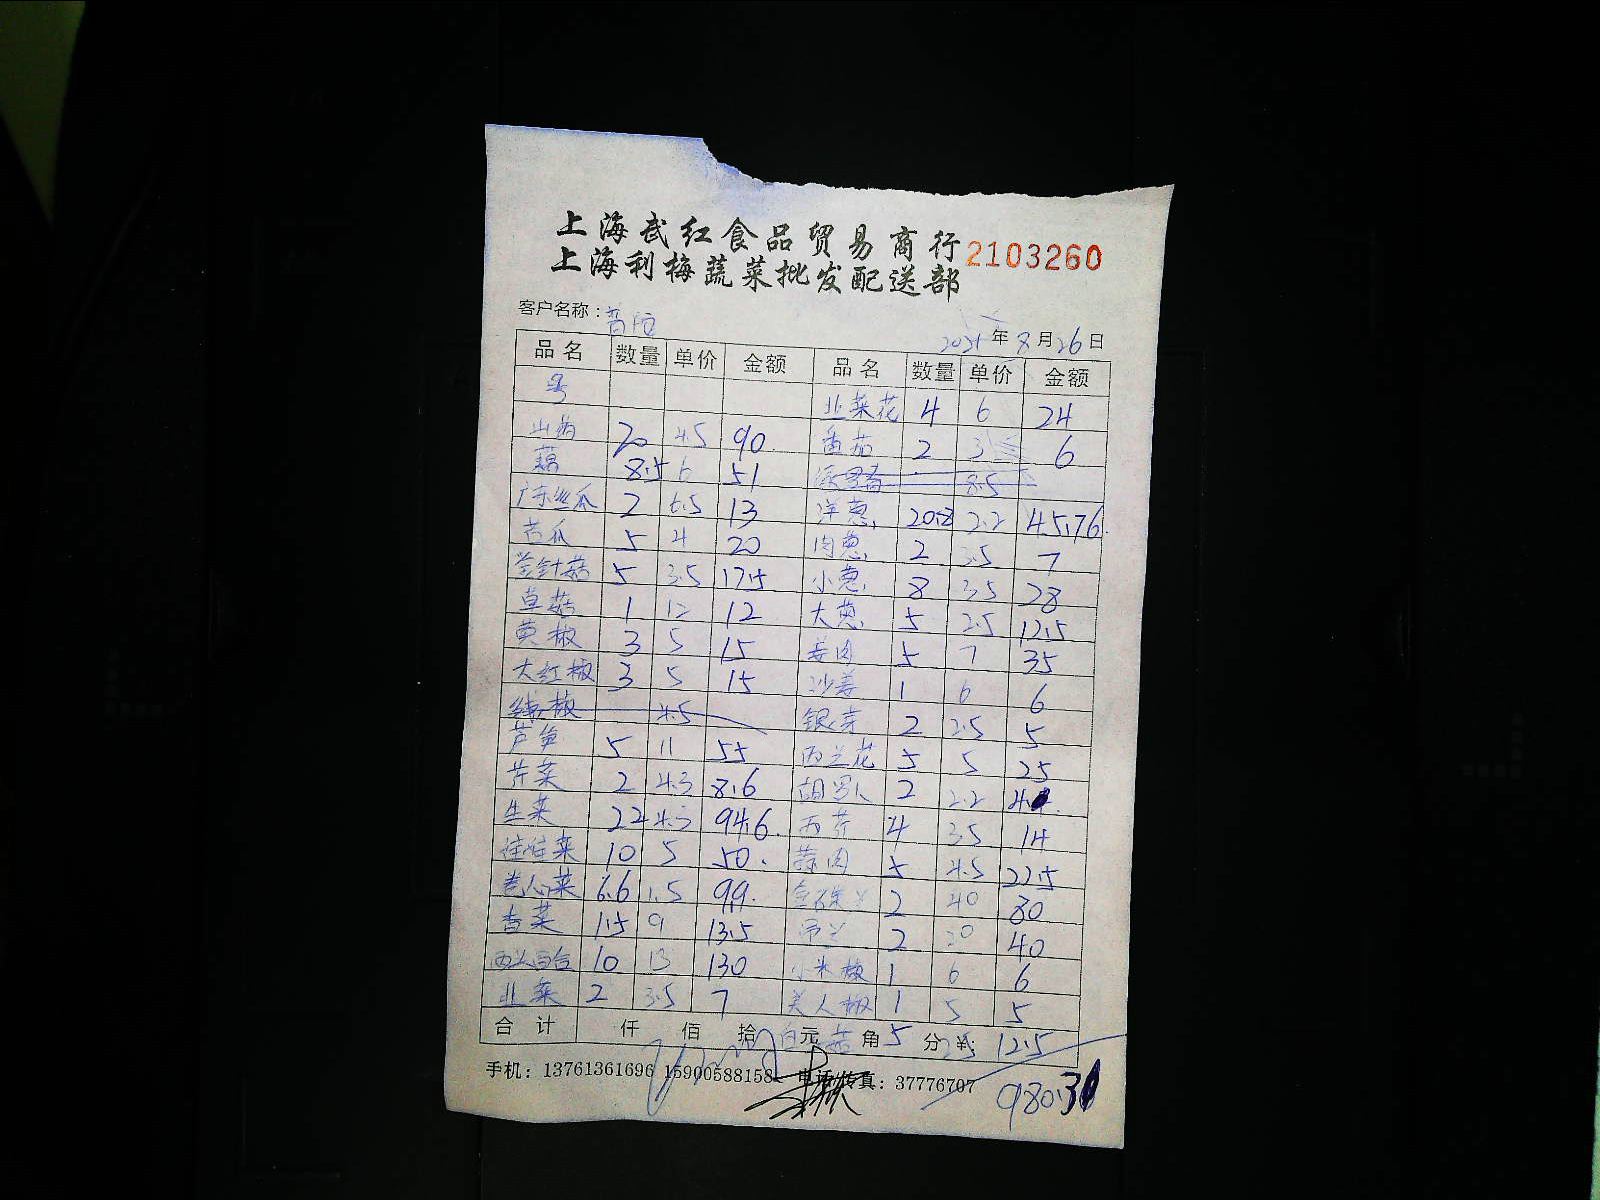 上海武红食品贸易商行
2103260
上海利梅蔬菜批发配送部
客户名称：
2025年8月26日
品名 数量 单价 金额 品名 数量 单价 金额
韭菜花 4 6 24
山药 20 4.5 90 番茄 2 3 6
藕 8.5 6 51 8.5
广东丝瓜 2 6.5 13 洋葱 20.8 2.2 45.76
苦瓜 5 4 20 肉葱 2 3.5 7
金针菇 5 3.5 17.5 小葱 8 3.5 28
草菇 1 12 12 大葱 5 2.5 12.5
黄椒 3 5 15 姜肉 5 7 35
大红椒 3 5 15 沙姜 1 6 6
4.5 银芽 2 2.5 5
芦笋 5 11 55 西兰花 5 5 25
芹菜 2 4.3 8.6 胡罗卜 2 2.2 4.4
生菜 22 4.3 94.6 西芹 4 3.5 14
娃娃菜 10 5 50 蒜肉 5 4.5 22.5
卷心菜 6.6 1.5 9.9 2 40 80
香菜 1.5 9 13.5 2 20 40
10 13 130 小米椒 1 6 6
韭菜 2 3.5 7 美人椒 1 5 5
合计 仟 佰 拾 元 角 分 ¥: 白菇 5 2.5 12.5
手机：13761361696 15900588158 电话/传真：37776707
980.3